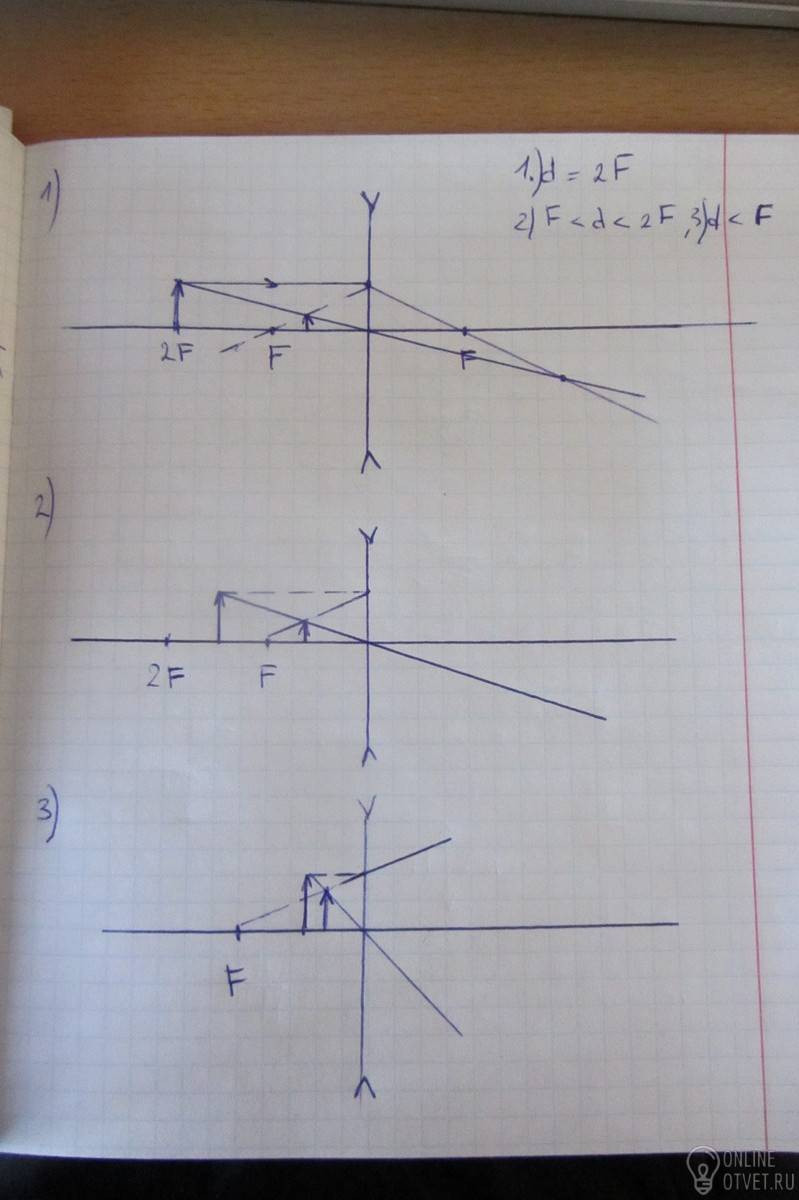 1)
1.) d = 2F
2) F < d < 2F, 3) d < F
2F F F
2)
2F F
3)
F
ONLINE
OTVET.RU